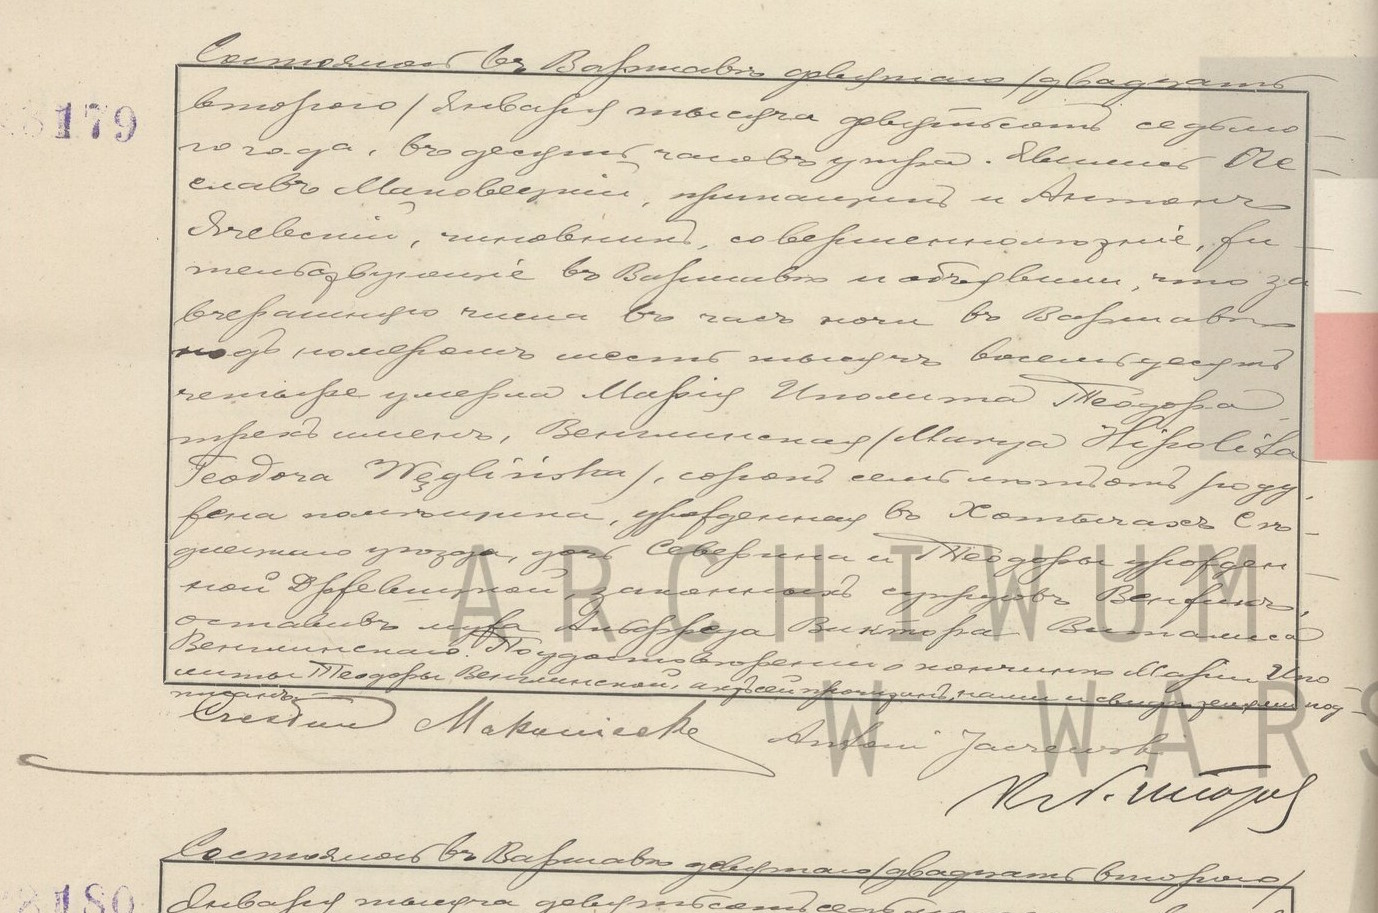 Состоялось въ Варшавѣ девятаго /двадцать
179
второго/ Января тысяча девятьсотъ седьмо-
го года, въ десять часовъ утра. Явились Че-
славъ Маковецкій, и Антонъ
Ячевскій, чиновникъ, совершеннолѣтніе, жи-
тельствующіе въ Варшавѣ и объявили, что за
вчерашняго числа въ часъ ночи въ Варшавѣ
подъ номеромъ шесть тысячъ восемьдесятъ
четыре умерла Марія Иполита Теодора
трехъ именъ, Венглинская /Marya Hipolita
Teodora Węglińska/, сорокъ семь лѣтъ отъ роду,
жена помѣщика, урожденная въ Хотычахъ Сѣ-
длецкаго уѣзда, дочь Северина и Теодоры урожден-
ной законныхъ супруговъ
оставивъ мужа Альфреда Виктора Виталиса
Венглинскаго. По удостовѣреніи о кончинѣ Маріи Ипо-
литы Теодоры Венглинской, актъ сей прочитанъ, нами и свидѣтелями под-
писанъ.
Makowiecki Antoni Jaczewski
Состоялось въ Варшавѣ девятаго /двадцать второго/
180
Января тысяча девятьсотъ
ARCHIWUM
W WARS